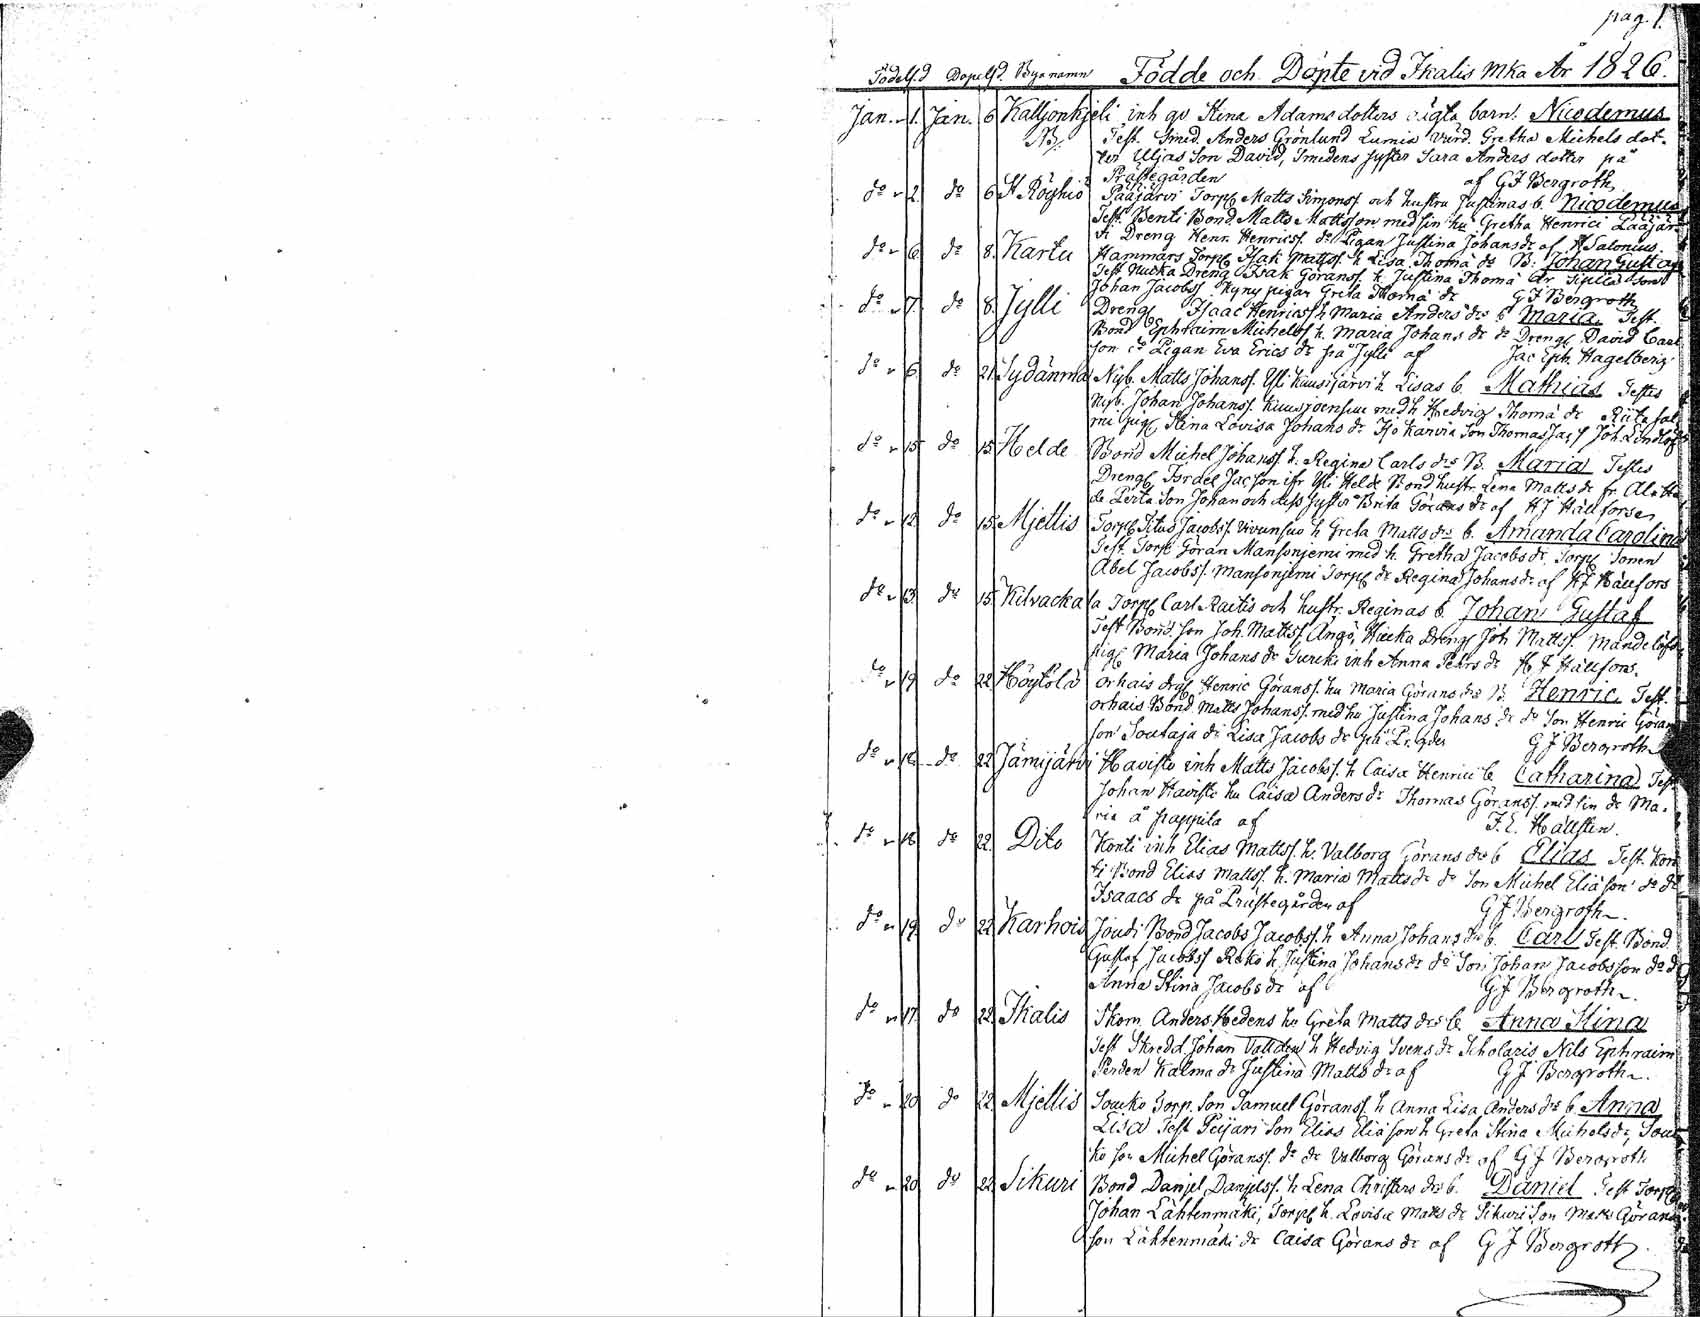 pag. 1.
Födels.d Döpels.d. Byanamn Födde och Döpte vid Ikalis mka År 1826.
Jan. 1. Jan. 6 Kalljonkjeli inh qv Stina Adams dotters oägta barn. Nicodemus
NB. Test. Smed. Anders Grönlund Lumia Gretha Michels dot-
ter Uljas Son David, Smedens syster Sara Anders dotter på
Prästegården af GJ Bergroth.
do 2. do 6 St Röyhiö Paajärvi Torp. Matts Simonss. och hustru Justinas b. Nicodemus
Test. Benti Bond. Matts Mattsson med sin hu Gretha Henrici Paajär-
vi Dreng Henr. Henricss. do Pigan Justina Johans dr af H Salonius.
do 6. do 8. Kartu Hammars Torp. Isak Mattss. h Lisa Thoma ds B. Johan Gustaf
Test Nucka Dreng Isak Göranss. h. Justina Thoma dr Sipilä Son
Johan Jacobss Kyny pigan Greta Thoma dr GJ Bergroth
do 7. do 8. Jylli Dreng Isaac Henricss h Maria Anders drs b Maria. Test.
Bond Ephraim Michelss h. Maria Johans dr do Dreng David Carl
son do Pigan Eva Erics dr frå Jylli af Jac Eph. Hagelberg
do 6. do 21. Sydänma Nyb. Matts Johanss. Yli Kuusijärvi h Lisas b. Mathias Testes
Nyb. Johan Johanss. Kuusjoensuu med h Hedvig Thoma dr Riitasal
mi pig. Stina Lovisa Johans dr Karvia Son Thomas Jac. af Joh. Lindlöf
do 15. do 15. Helde Bond Michel Johanss. h. Regina Carls drs B. Maria Testes
Dreng Isdel Jacson ifr Yli Helde Bond hustr. Lena Matts dr fr. Ala He
de Perta Son Johan och dess syster Brita Görans dr af HJ Hällfors
do 12. do 15. Mjellis Torp. Titus Jacobss. Vivunsuo h Greta Matts drs b. Amanda Carolina
Test. Torp. Göran Mansonjemi med h. Gretha Jacobs dr Torp. Sonen
Abel Jacobss. Mansonjemi Torp. dr Regina Johans dr af HJ Hällfors
do 13. do 15. Kilvacka la Torp. Carl Raitis och hustr. Reginas b. Johan Gustaf
Test Bond. Son Joh. Mattss. Ångo, Hucka Dreng Joh Mattss. Mandelöfs
pig. Maria Johans dr inh Anna Pehrs dr HJ Hällfors.
do 19 do 22 Höytölä orhais dreg Henric Göranss. hu Maria Görans drs B. Henric. Test.
orhais Bond Matts Johanss. med hu Justina Johans dr do Son Henric Göran
son Soutaja dr Lisa Jacobs dr på Pr.gden GJ Bergroth
do 16. do 22 Jämijärvi Havisto inh Matts Jacobss. h Caisa Henrici b Catharina Test
Johan Havisto hu Caisa Anders dr Thomas Göranss. med sin dr Ma-
ria å pappila af F.E. Hällsten.
do 18 do 22. Dito Konti inh Elias Mattss. h. Valborg Görans drs b Elias Test. Kon
ti Bond Elias Mattss. h. Maria Matts dr do Son Michel Eliason do dr
Isaacs dr på Prästegården af GJ Bergroth.
do 19. do 22 Karhois Joudi Bond Jacobs Jacobss. h Anna Johans drs b. Carl Test. Bond
Gustaf Jacobss Roko h Justina Johans dr do Son Johan Jacobsson do d
Anna Stina Jacobs dr af GJ Bergroth.
do 17. do 22. Ikalis Skom. Anders Hedens hu Greta Matts drs b. Anna Stina
Test Skredd Johan Vallden h Hedvig Svens dr Scholaris Nils Ephraim
Perden Kalma dr Justina Matts dr af GJ Bergroth.
do 20 do 22. Mjellis Soucko Torp. Son Samuel Göranss. h Anna Lisa Anders drs b. Anna
Lisa Test Peijari Son Elias Eliason h Greta Stina Michels dr, Souc
ko son Michel Göranss. do dr Valborg Görans dr af GJ Bergroth
do 20. do 22. Sikuri Bond Daniel Danielss. h Lena Christers drs b. Daniel Test Torp.
Johan Lähtenmäki, Torp. h. Lovisa Matts dr Sikuri Son Matts Göran
son Lähtenmäki dr Caisa Görans dr af GJ Bergroth